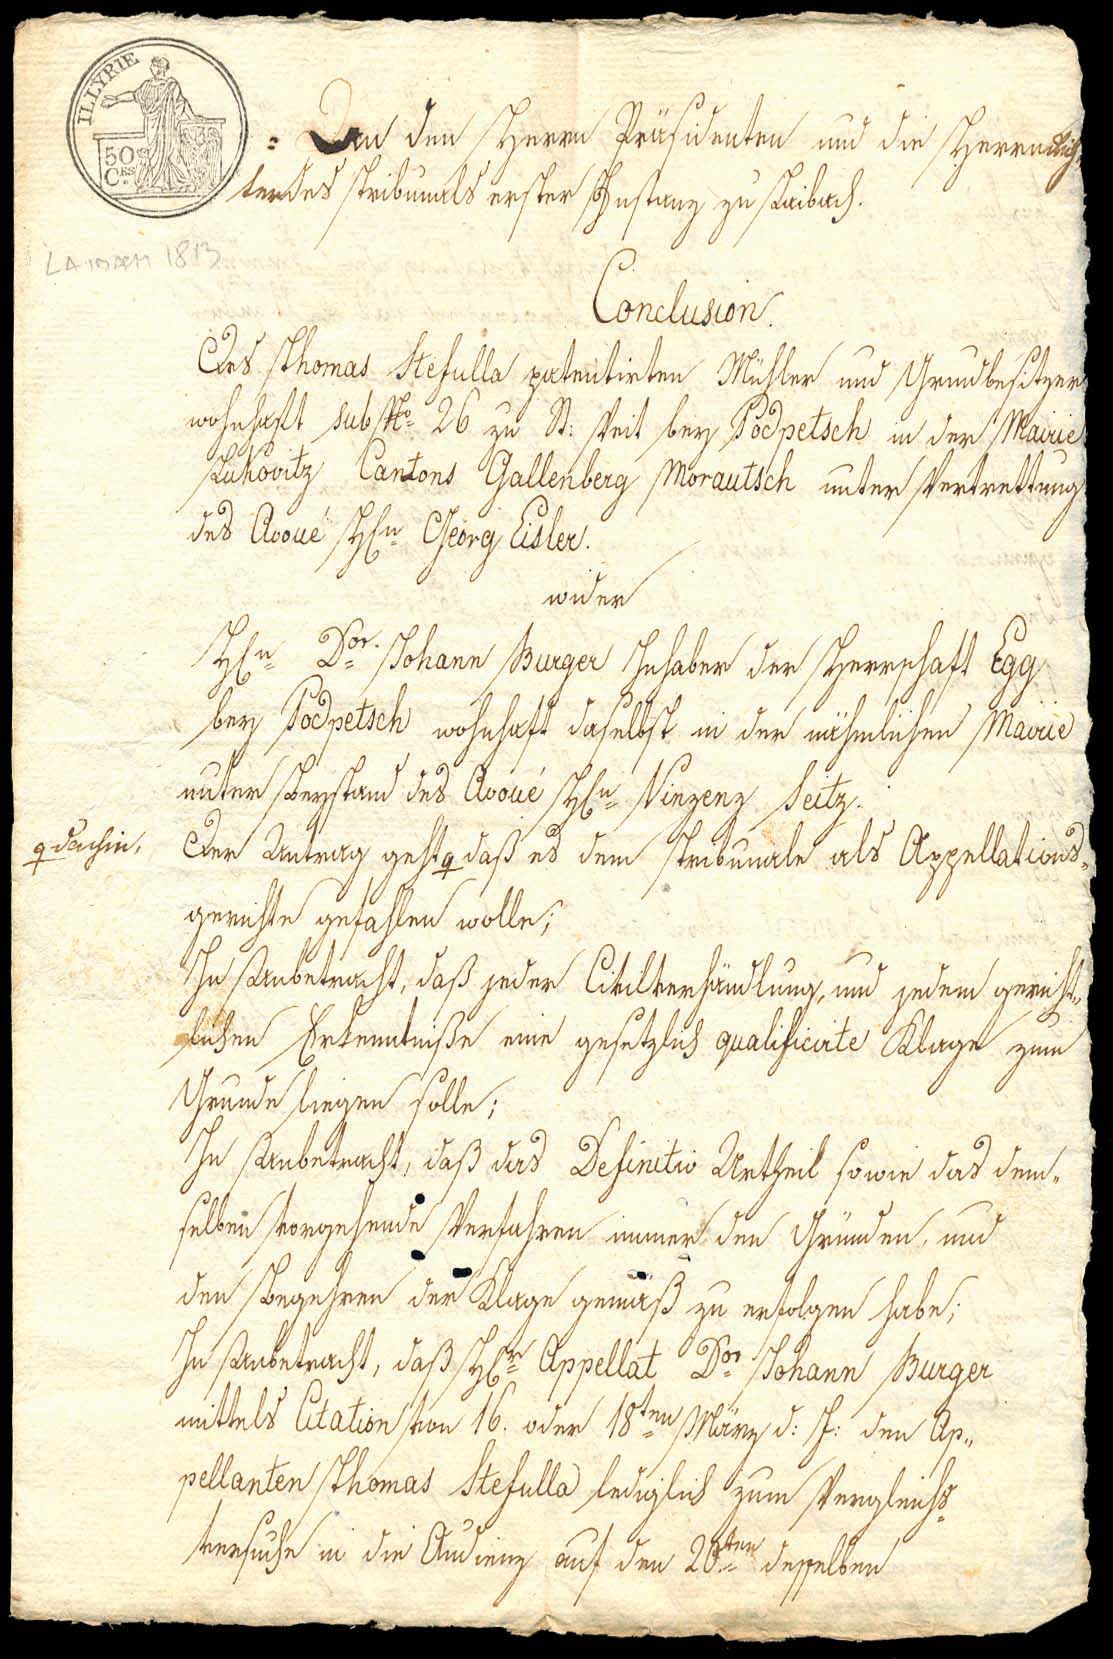 ILLYRIE
50
Ces
An den Herrn Präsidenten und die Herrn Rich-
ter des Tribunals erster Instanz zu Laibach.
LAIBACH 1813
Conclusion.
Des Thomas Stefulla patentirten Mühler und Grundbesitzer
wohnhaft sub No 26 zu St: Veit bey Podpetsch in der Mairie
Lukovitz Cantons Gallenberg Morautsch unter Vertrettung
des Avoué Hrn Georg Eisler.
wider
Hrn Dor Johann Burger Inhaber der Herrschaft Egg
bey Podpetsch wohnhaft daselbst in der nähmlichen Mairie
unter Beystand des Avoué Hrn Vinzenz Seitz.
dahin,
Der Antrag geht daß es dem Tribunale als Appellations-
gerichte gefahlen wolle;
In Anbetracht, daß jeder Civilverhandlung, und jedem gericht-
lichen Erkenntniße eine gesetzlich qualificirte Klage zum
Grunde liegen solle;
In Anbetracht, daß das Definitiv Urtheil sowie das dem-
selben vorgehende Verfahren immer den Gründen, und
den Begehren der Klage gemäß zu erfolgen habe;
In Anbetracht, daß Hr Appellat Dor Johann Burger
mittels Citation von 16. oder 18ten März d: J: den Ap-
pellanten Thomas Stefulla lediglich zum Vergleichs-
versuche in die Audienz auf den 20ten desselben